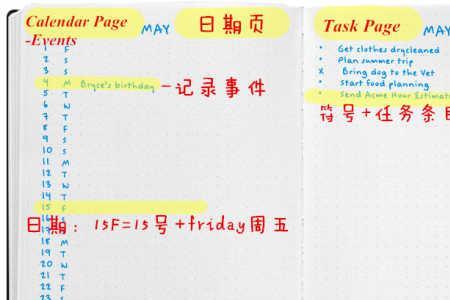 Calendar Page MAY 日期页
-Events
1 F
2 S
3 S
4 M Bryce's birthday -记录事件
5 T
6 W
7 T
8 F
9 S
10 S
11 M
12 T
13 W
14 T
15 F
16 S
日期: 15F=15号+friday周五
17 S
18 M
19 T
20 W
21 T
22 F
23 S
Task Page MAY
• Get clothes drycleaned
• Plan summer trip
x Bring dog to the Vet
• Start food planning
• Send Acme Hour Estimat
符号+任务条目